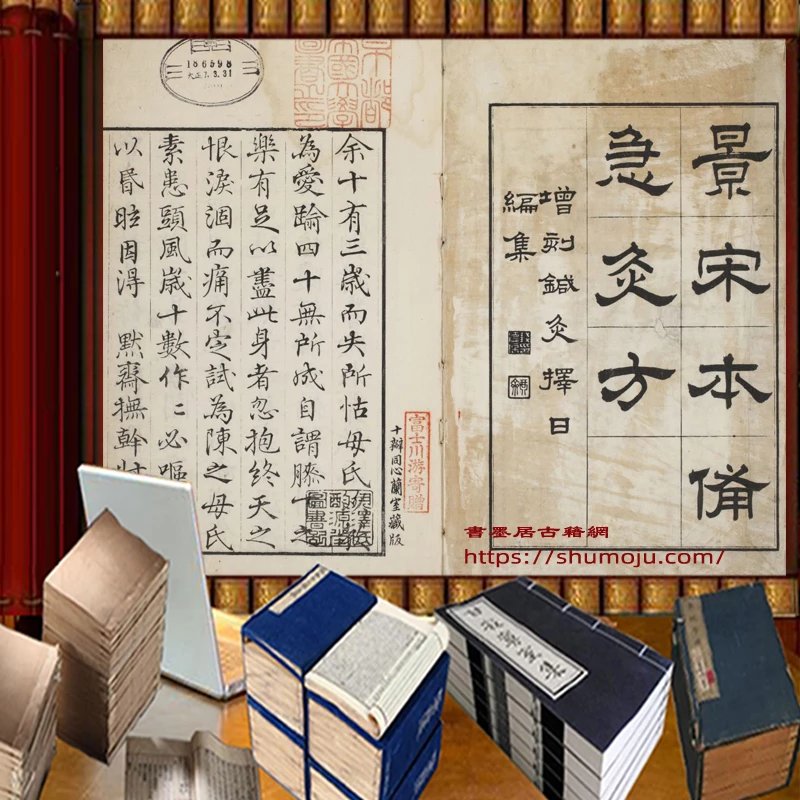 景宋本備
急灸方
增刻鍼灸擇日
編集
書墨居古籍網
https://shumoju.com/
186598
大正7.3.31
富士川游寄贈
十瓣同心蘭室藏版
余十有三歳而失所怙母氏
為愛踰四十無所成自謂滕下之
樂有足以盡此身者忽抱終天之
恨淚涸而痛不定試為陳之母氏
素患頭風歳十數作〻必嘔
以昏眩因得 默齋撫幹